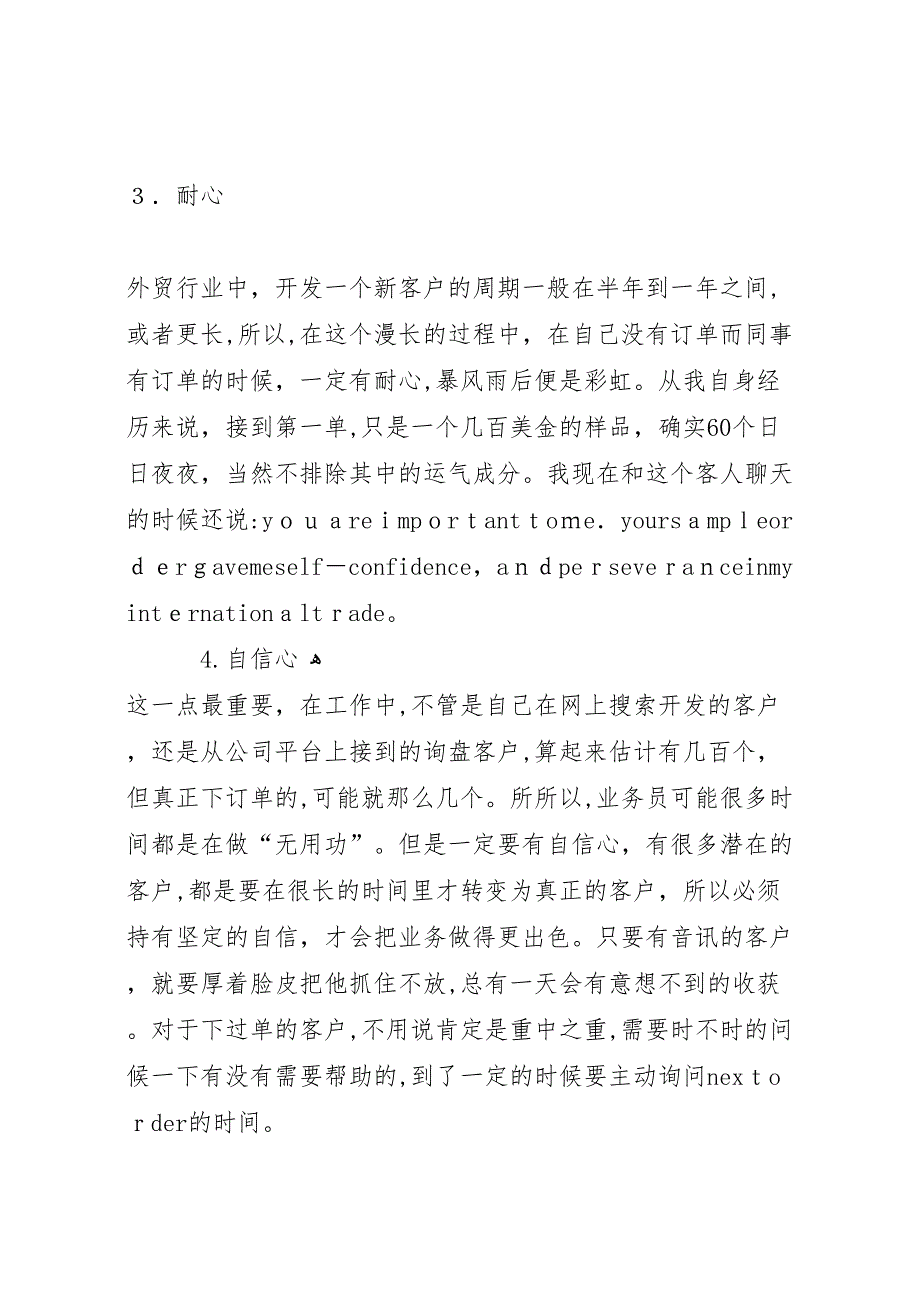 ３．耐心
外贸行业中，开发一个新客户的周期一般在半年到一年之间,
或者更长,所以,在这个漫长的过程中，在自己没有订单而同事
有订单的时候，一定有耐心,暴风雨后便是彩虹。从我自身经
历来说，接到第一单,只是一个几百美金的样品，确实60个日
日夜夜，当然不排除其中的运气成分。我现在和这个客人聊天
的时候还说:youareimportanttome．yoursampleor
dergavemeself－confidence，andperseveranceinmy
internationaltrade。
4.自信心 ﻫ
这一点最重要，在工作中,不管是自己在网上搜索开发的客户
，还是从公司平台上接到的询盘客户,算起来估计有几百个，
但真正下订单的,可能就那么几个。所所以,业务员可能很多时
间都是在做“无用功”。但是一定要有自信心，有很多潜在的
客户,都是要在很长的时间里才转变为真正的客户，所以必须
持有坚定的自信，才会把业务做得更出色。只要有音讯的客户
，就要厚着脸皮把他抓住不放,总有一天会有意想不到的收获
。对于下过单的客户,不用说肯定是重中之重,需要时不时的问
候一下有没有需要帮助的,到了一定的时候要主动询问nexto
rder的时间。